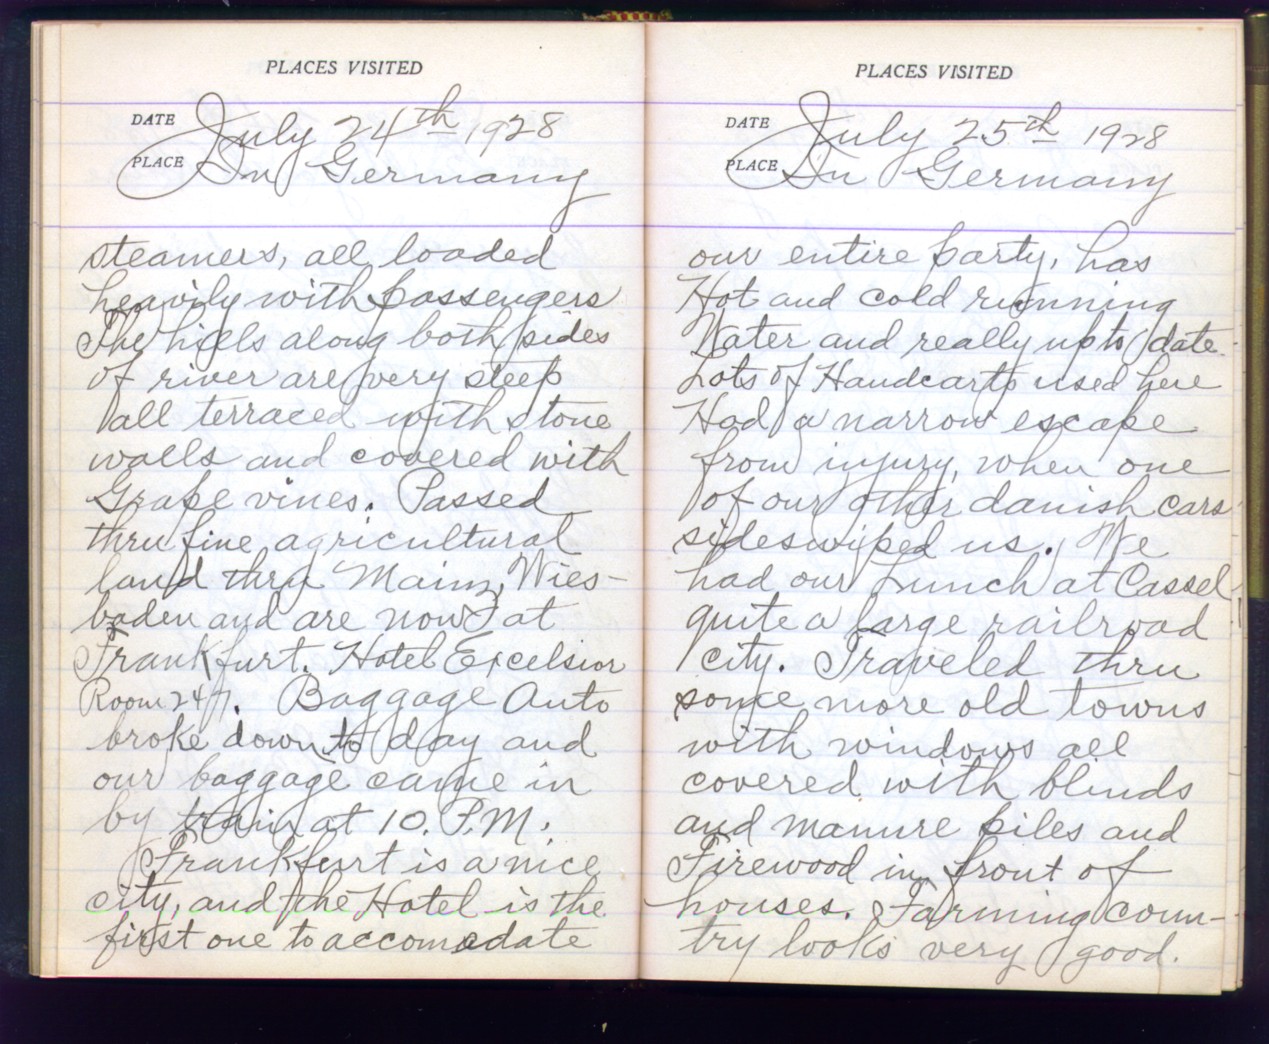 PLACES VISITED
DATE July 24th 1928
PLACE In Germany
steamers, all loaded
heavily with passengers
The hills along both sides
of river are very steep
all terraced with stone
walls and covered with
Grape vines. Passed
thru fine agricultural
land thru Mainz, Wies-
baden and are now at
Frankfurt. Hotel Excelsior
Room 247. Baggage Auto
broke down to day and
our baggage came in
by train at 10. P.M.
Frankfurt is a nice
city, and the Hotel is the
first one to accomodate
PLACES VISITED
DATE July 25th 1928
PLACE In Germany
our entire party, has
Hot and cold running
Water and really up to date.
Lots of Handcarts used here
Had a narrow escape
from injury, when one
of our other danish cars
sideswiped us. We
had our Lunch at Cassel,
quite a large railroad
city. Traveled thru
some more old towns
with windows all
covered with blinds
and manure piles and
Firewood in front of
houses. Farming coun-
try looks very good.